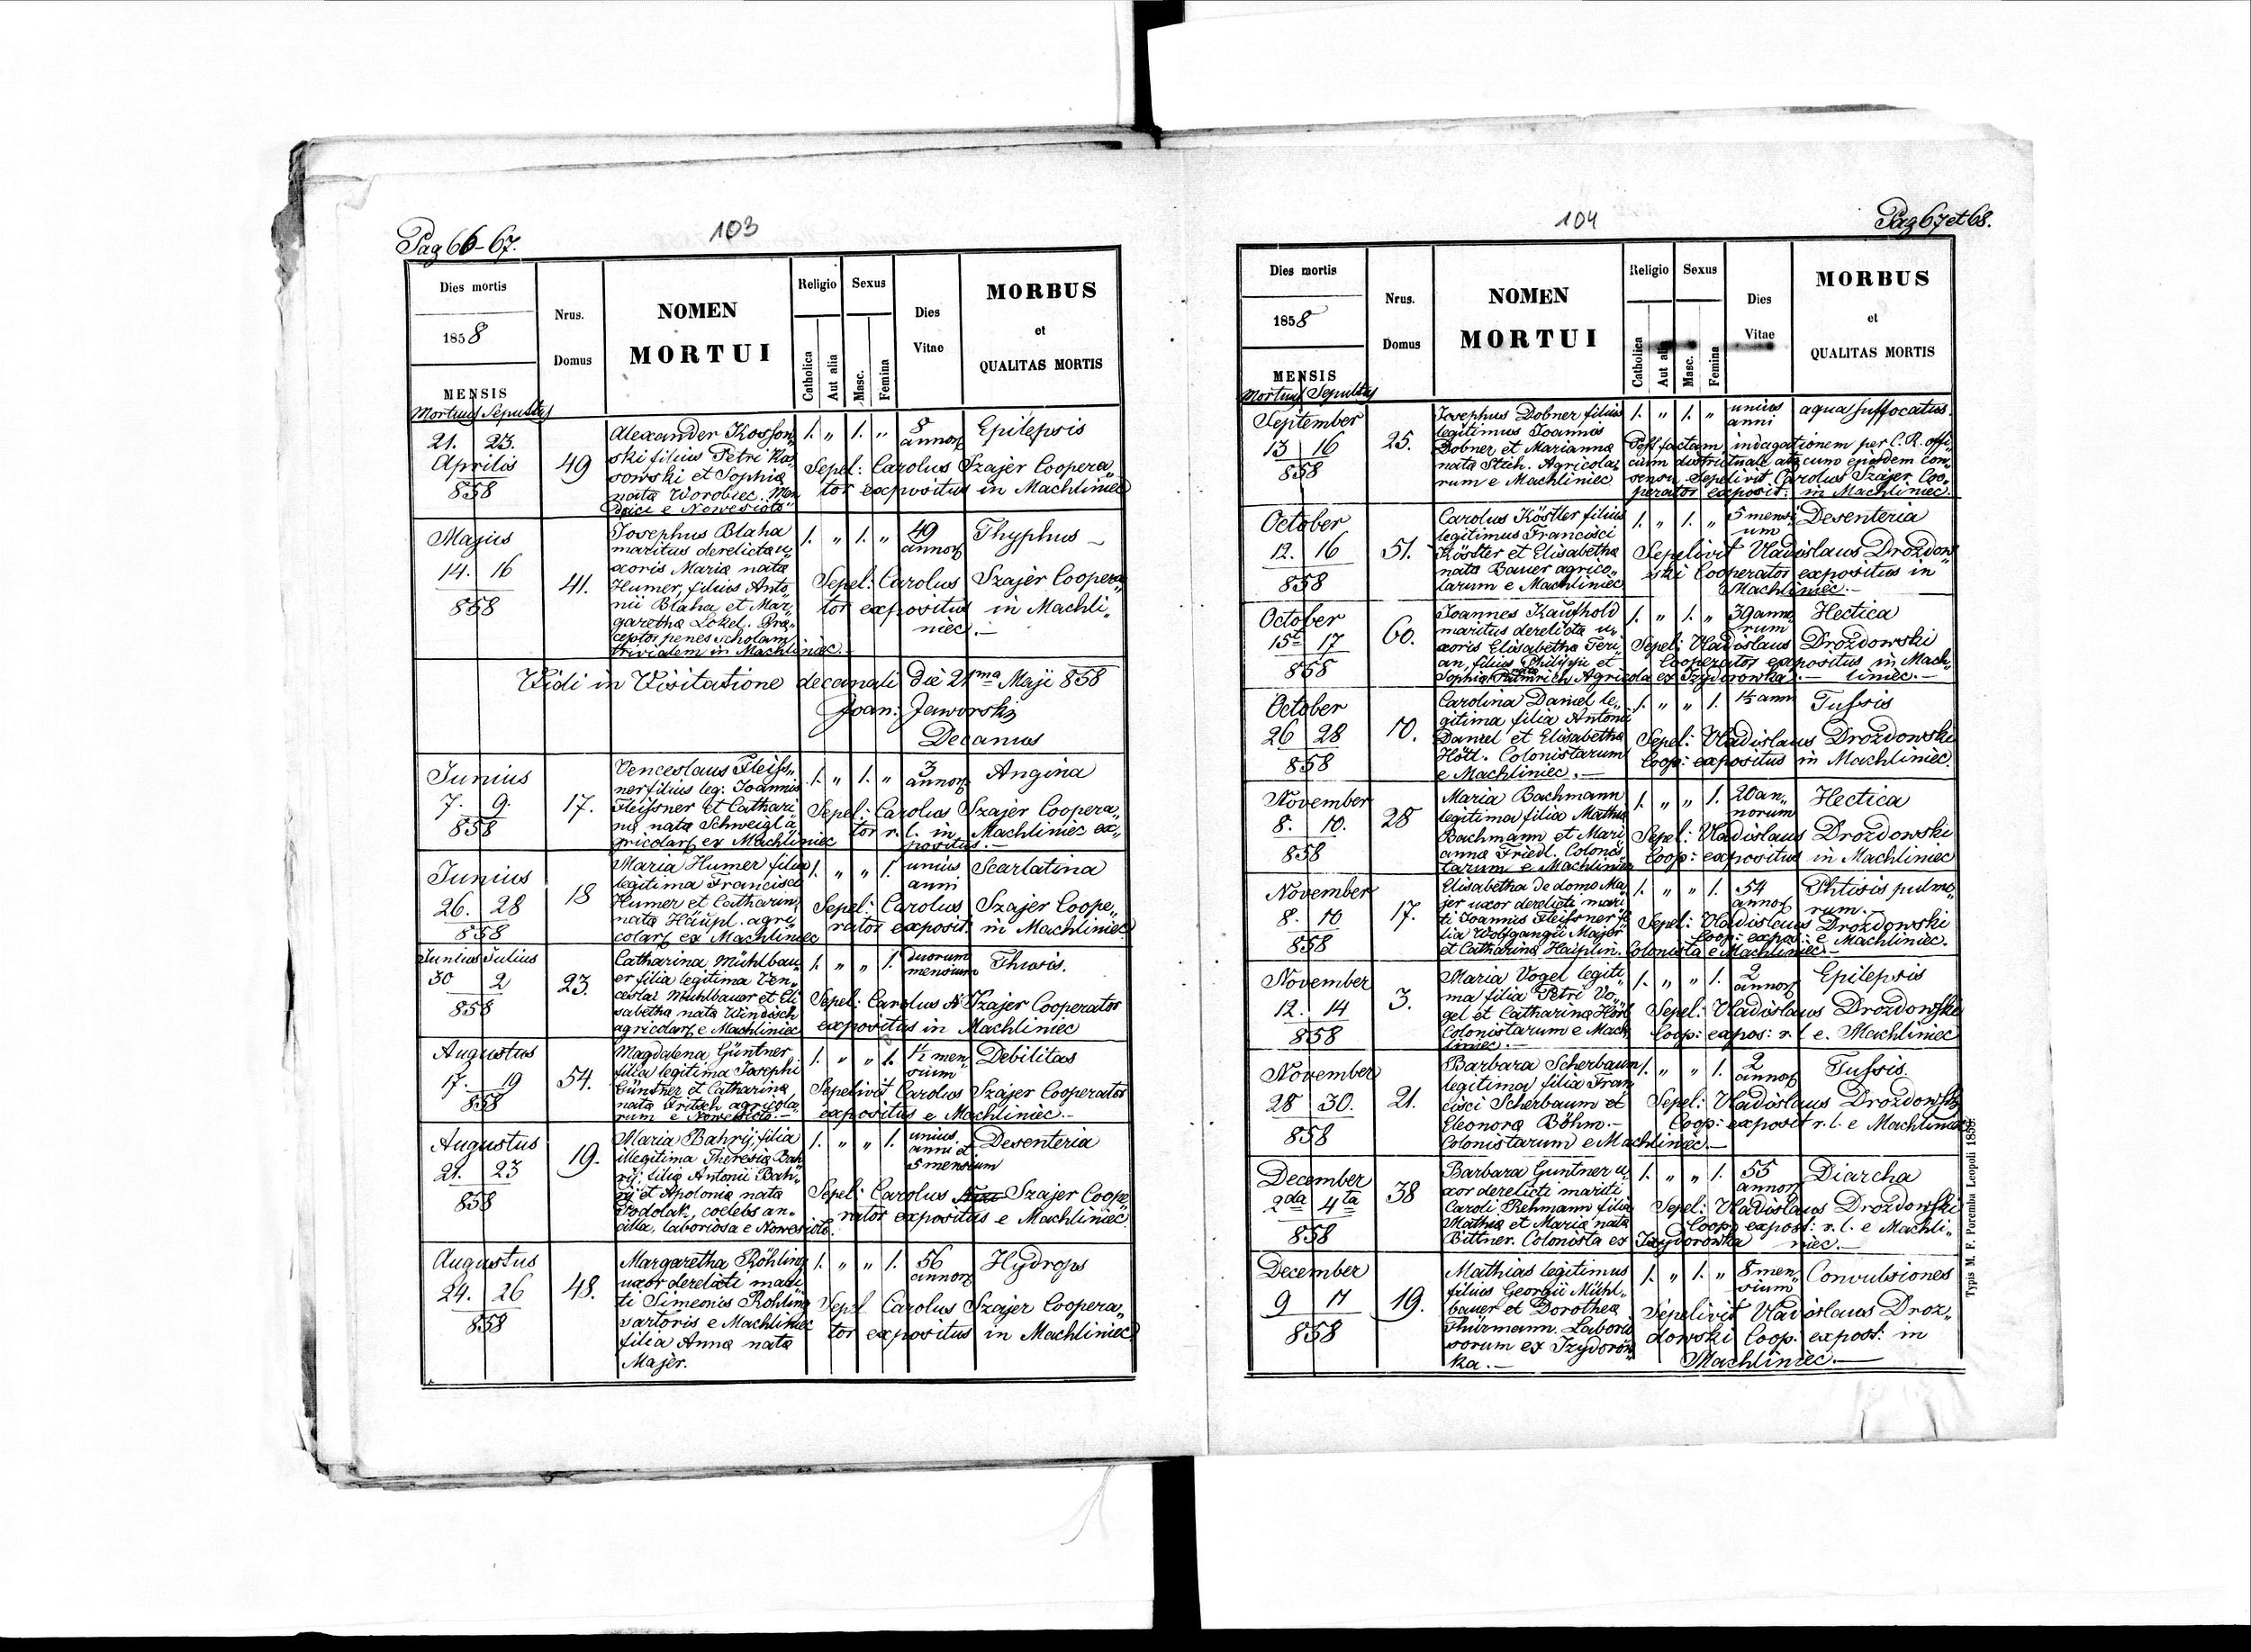 Pag 66-67.
103
Dies mortis
1858
MENSIS
Mortuus Sepultus
Nrus.
Domus
NOMEN
MORTUI
Religio
Catholica
Aut alia
Sexus
Masc.
Femina
Dies
Vitae
MORBUS
et
QUALITAS MORTIS
21. 23.
Aprilis
858
49
Alexander Kosson„
ski filius Petri Kos„
sowski et Sophia
nata Worobiec. Men
dici e Nowesioło
1. „ 1. „
8
annor
Epilepsis
Sepel: Carolus Szajer Coopera„
tor expositus in Machliniec
Majus
14. 16
858
41.
Josephus Blaha
maritus derelicta u„
xoris Maria nata
Humer, filius Anto„
nii Blaha et Mar„
garetha Lokel. Præ„
ceptor penes scholam
trivialem in Machliniec.
1. „ 1. „
49
annor
Thyphus –
Sepel: Carolus Szajer Coopera„
tor expositus in Machli„
niec.–
Vidi in Visitatione decanali die 21ma Maji 858
Joan: Jaworski
Decanus
Junius
7. 9.
858
17.
Venceslaus Fleiss„
ner filius leg: Joannis
Fleissner et Cathari
na nata Schweigl a
gricolar ex Machliniec
1. „ 1. „
3
annor
Angina
Sepel: Carolus Szajer Coopera„
tor r. l. in Machliniec ex„
positus.–
Junius
26. 28
858
18
Maria Humer filia
legitima Francisci
Humer et Catharina
nata Häupl. agri
colar ex Machliniec
1. „ „ 1.
unius
anni
Scarlatina
Sepel: Carolus Szajer Coope„
rator exposit: in Machliniec
Junius Julius
30 2
858
23.
Catharina Mühlbau„
er filia legitima Ven„
ceslai Mühlbauer et Eli
sabetha nata Windisch
agricolar e Machliniec
1. „ „ 1.
duorum
mensium
Thusis.
Sepel: Carolus Szajer Cooperator
expositus in Machliniec
Augustus
17. 19
858
54.
Magdalena Güntner
filia legitima Josephi
Güntner et Catharina
nata Fritsch agricola
rum e Nowesioło.–
1. „ „ 1.
1½ men„
sium
Debilitas
Sepelivit Carolus Szajer Cooperator
expositus e Machliniec.–
Augustus
21. 23
858
19.
Maria Bahrij; filia
illegitima Theresia Bah
rij; filia Antonii Bah„
rij et Apolonia nata
Podolak, coelebs an„
cilla, laboriosa e Nowesioło.
1. „ „ 1.
unius
anni et
5 mensium
Desenteria
Sepel: Carolus Szajer Coope
rator expositus e Machliniec
Augustus
24. 26
858
48.
Margaretha Röhling
uxor derelicti mari
ti Simeonis Röhling
sartoris e Machliniec
filia Anna nata
Majer.
1. „ „ 1.
56
annor
Hydrops
Sepel Carolus Szajer Coopera„
tor expositus in Machliniec
104
Pag 67 et 68.
Dies mortis
1858
MENSIS
Mortuus Sepultus
Nrus.
Domus
NOMEN
MORTUI
Religio
Catholica
Aut alia
Sexus
Masc.
Femina
Dies
Vitae
MORBUS
et
QUALITAS MORTIS
September
13 16
858
25.
Josephus Dobner filius
legitimus Joannis
Dobner et Marianna
nata Stich. Agricola„
rum e Machliniec
1. „ 1. „
unius
anni
aqua suffocatus.
Post factam indagationem per C. R. offi„
cium districtuale atq cum ejusdem con„
sensu. Sepelivit Carolus Szajer Coo„
perator exposit: in Machliniec.
October
12. 16
858
51.
Carolus Köstler filius
legitimus Francisci
Köstler et Elisabetha
nata Bauer agrico„
larum e Machliniec
1. „ 1. „
5 mensi
um
Desenteria
Sepelivit Vladislaus Drozdow
ski Cooperator expositus in
Machliniec.–
October
15t 17
858
60.
Joannes Kaufhold
maritus derelicta u„
xoris Elisabetha Feri„
an, filius Philippi et
Sophia nata Agricola ex Izydorowka.–
1. „ 1. „
39 anno
rum
Hectica
Sepel: Vladislaus Drozdowski
Cooperator expositus in Mach„
liniec.–
October
26 28
858
10.
Carolina Daniel le„
gitima filia Antonii
Daniel et Elisabetha
Hötl. Colonistarum
e Machliniec.–
1. „ „ 1.
1½ ann
Tussis
Sepel: Vladislaus Drozdowski
Coop: expositus in Machliniec.
November
8. 10.
858
28
Maria Bachmann
legitima filia Mathia
Bachmann et Mari
anna Friedl. Colonis
tarum e Machliniec
1. „ „ 1.
20 an„
norum
Hectica
Sepel: Vladislaus Drozdowski
Coop: expositus in Machliniec
November
8. 10
858
17.
Elisabetha de domo Ma
jer uxor derelicti mari
ti Joannis Fleissner fi
lia Wolfgangii Majer
et Catharina Haiplin. Colonista e Machliniec.–
1. „ „ 1.
54
annor
Phtisis pulmo
rum.
Sepel: Vladislaus Drozdowski
Coop: expos: e Machliniec.
November
12. 14
858
3.
Maria Vogel legiti
ma filia Petri Vo„
gel et Catharina Hörl
Colonistarum e Mach
liniec.–
1. „ „ 1.
2
annor
Epilepsis
Sepel: Vladislaus Drozdowski
Coop: expos: r. l e. Machliniec
November
28 30.
858
21.
Barbara Scherbaum
legitima filia Fran
cisci Scherbaum et
Eleonora Böhm.–
Colonistarum e Machliniec.–
1. „ „ 1.
2
annor
Tussis.
Sepel: Vladislaus Drozdowski
Coop: exposit r. l. e Machliniec
December
2da 4ta
858
38
Barbara Guntner u„
xor derelicti mariti
Caroli Rehmann filia
Mathia et Maria nata
Bittner. Colonista ex Izydorowka
1. „ „ 1.
55
annor
Diarcha
Sepel: Vladislaus Drozdowski
Coop expost: r. l. e Machli„
niec.–
December
9 11
858
19.
Mathias legitimus
filius Georgii Mühl„
bauer et Dorothea
Thürmann. Laborio
sorum ex Izydorow
ka.–
1. „ 1. „
8 men„
sium
Convulsiones
Sepelivit Vladislaus Droz„
dowski Coop: expost: in
Machliniec.–
Typis M. F. Poremba Leopoli 1858.